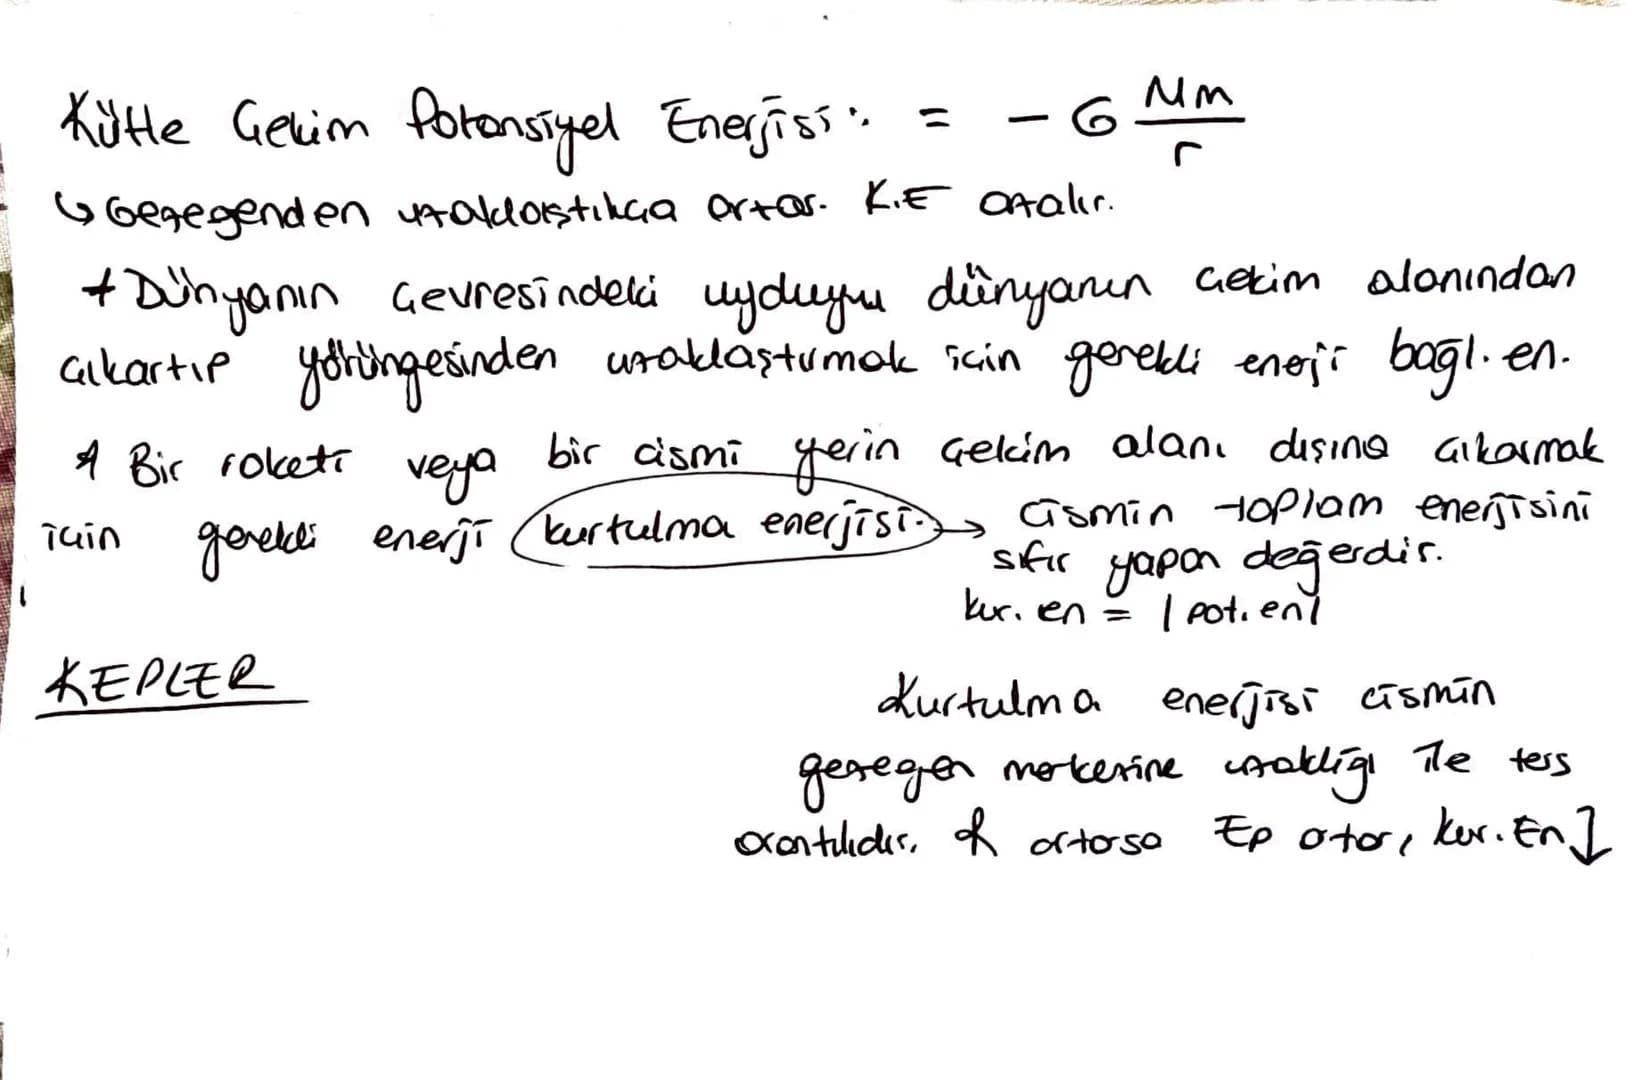 Kütle Çekim Potansiyel Enerjisi: = - G Mm/r
↳ Gezegenden uzaklaştıkça artar. K.E azalır.
+ Dünyanın çevresindeki uyduyu dünyanın çekim alanından
çıkartıp yörüngesinden uzaklaştırmak için gereklli enerji bağl. en.
* Bir roketi veya bir cismi yerin çekim alanı dışına çıkarmak
için gerekli enerji kurtulma enerjisi. → cismin toplam enerjisini
sıfır yapan değerdir.
kur. en = | pot. en |
KEPLER
Kurtulma enerjisi cismin
gezegen merkezine uzaklığı ile ters
orantılıdır. R artarsa Ep artar, kur. En ↓